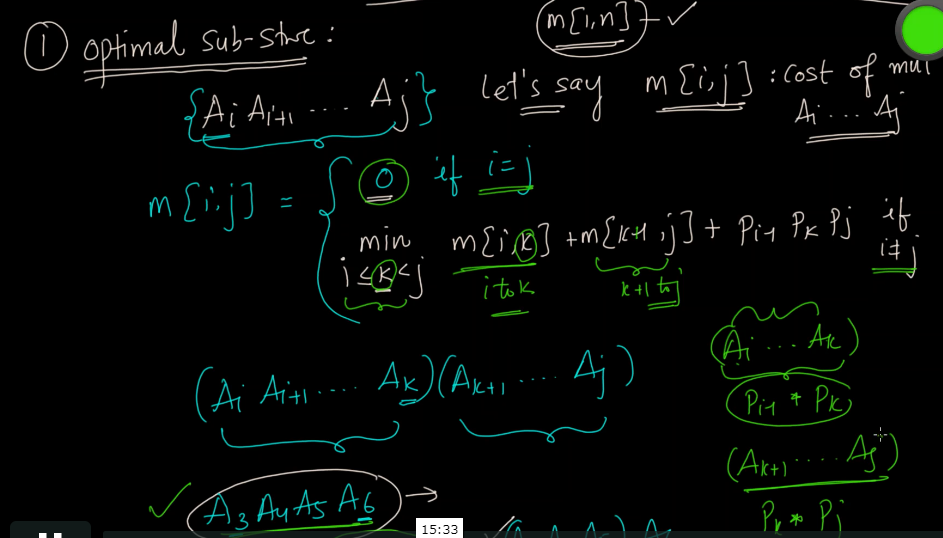 m[1,n] - ✓
① optimal sub-struc :
{Ai Ai+1 .... Aj}
Let's say m[i,j] : cost of mul
Ai ... Aj
m[i,j] = { 0 if i=j
min i≤k<j m[i,k] + m[k+1,j] + Pi-1 Pk Pj if i≠j
i to k
k+1 to j
(Ai ... Ak)
(Ai Ai+1 .... Ak)(Ak+1 .... Aj)
Pi-1 * Pk
(Ak+1 .... Aj)
✓ A3 A4 A5 A6 →
Pk * Pj
15:33